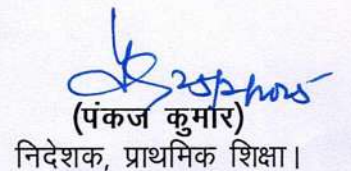 (पंकज कुमार)
निदेशक, प्राथमिक शिक्षा।